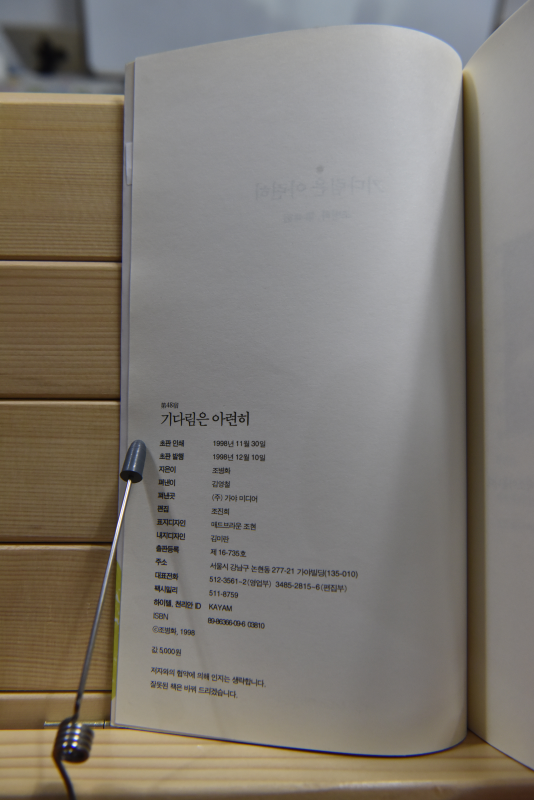 第48詩
기다림은 아련히
초판 인쇄 1998년 11월 30일
초판 발행 1998년 12월 10일
지은이 조병화
펴낸이 김영철
펴낸곳 (주) 가야 미디어
편집 조진희
표지디자인 애드브라운 조현
내지디자인 김미란
출판등록 제 16-735호
주소 서울시 강남구 논현동 277-21 가야빌딩(135-010)
대표전화 512-3561~2(영업부) 3485-2815~6(편집부)
팩시밀리 511-8759
하이텔, 천리안 ID KAYAM
ISBN 89-86366-09-6 03810
ⓒ조병화, 1998
값 5,000원
저자와의 협약에 의해 인지는 생략합니다.
잘못된 책은 바꿔 드리겠습니다.